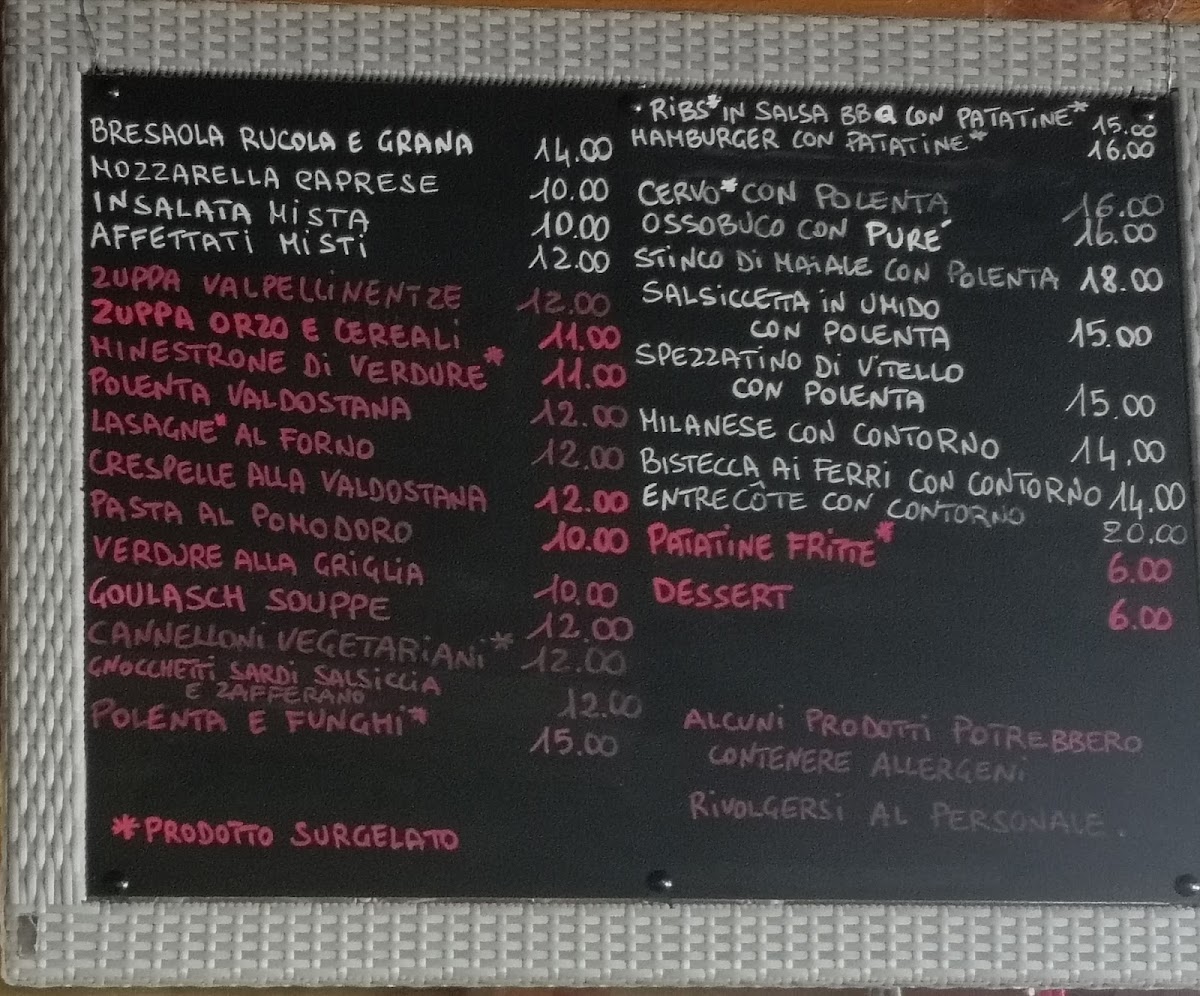 BRESAOLA RUCOLA E GRANA 14.00
MOZZARELLA CAPRESE 10.00
INSALATA MISTA 10.00
AFFETTATI MISTI 12.00
ZUPPA VALPELLINENTZE 12.00
ZUPPA ORZO E CEREALI 11.00
MINESTRONE DI VERDURE* 11.00
POLENTA VALDOSTANA 12.00
LASAGNE* AL FORNO 12.00
CRESPELLE ALLA VALDOSTANA 12.00
PASTA AL POMODORO 10.00
VERDURE ALLA GRIGLIA 10.00
GOULASCH SOUPPE 12.00
CANNELLONI VEGETARIANI* 12.00
GNOCCHETTI SARDI SALSICCIA
E ZAFFERANO 12.00
POLENTA E FUNGHI* 15.00
*PRODOTTO SURGELATO
• RIBS* IN SALSA BBQ CON PATATINE* 15.00
HAMBURGER CON PATATINE* 16.00
CERVO* CON POLENTA 16.00
OSSOBUCO CON PURE' 16.00
STINCO DI MAIALE CON POLENTA 18.00
SALSICCETTA IN UMIDO
CON POLENTA 15.00
SPEZZATINO DI VITELLO
CON POLENTA 15.00
MILANESE CON CONTORNO 14.00
BISTECCA AI FERRI CON CONTORNO 14.00
ENTRECÔTE CON CONTORNO 20.00
PATATINE FRITTE* 6.00
DESSERT 6.00
ALCUNI PRODOTTI POTREBBERO
CONTENERE ALLERGENI
RIVOLGERSI AL PERSONALE.